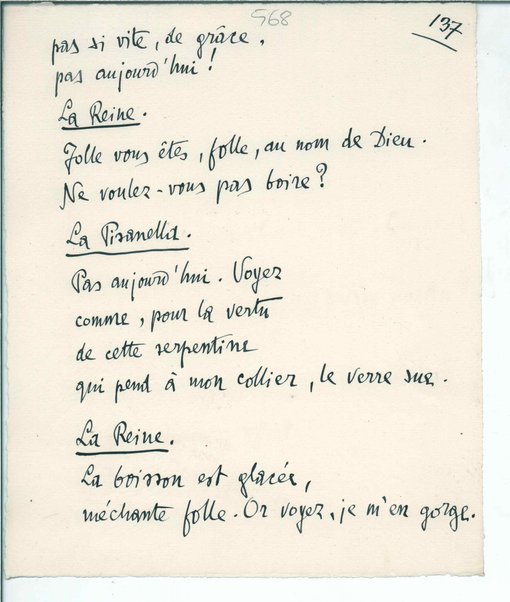 568
137
pas si vite, de grâce,
pas aujourd'hui !
La Reine.
Folle vous êtes, folle, au nom de Dieu.
Ne voulez-vous pas boire ?
La Pisanella.
Pas aujourd'hui. Voyez
comme, pour la vertu
de cette serpentine
qui pend à mon collier, le verre sue.
La Reine.
La boisson est glacée,
méchante folle. Or voyez, je m'en gorge.